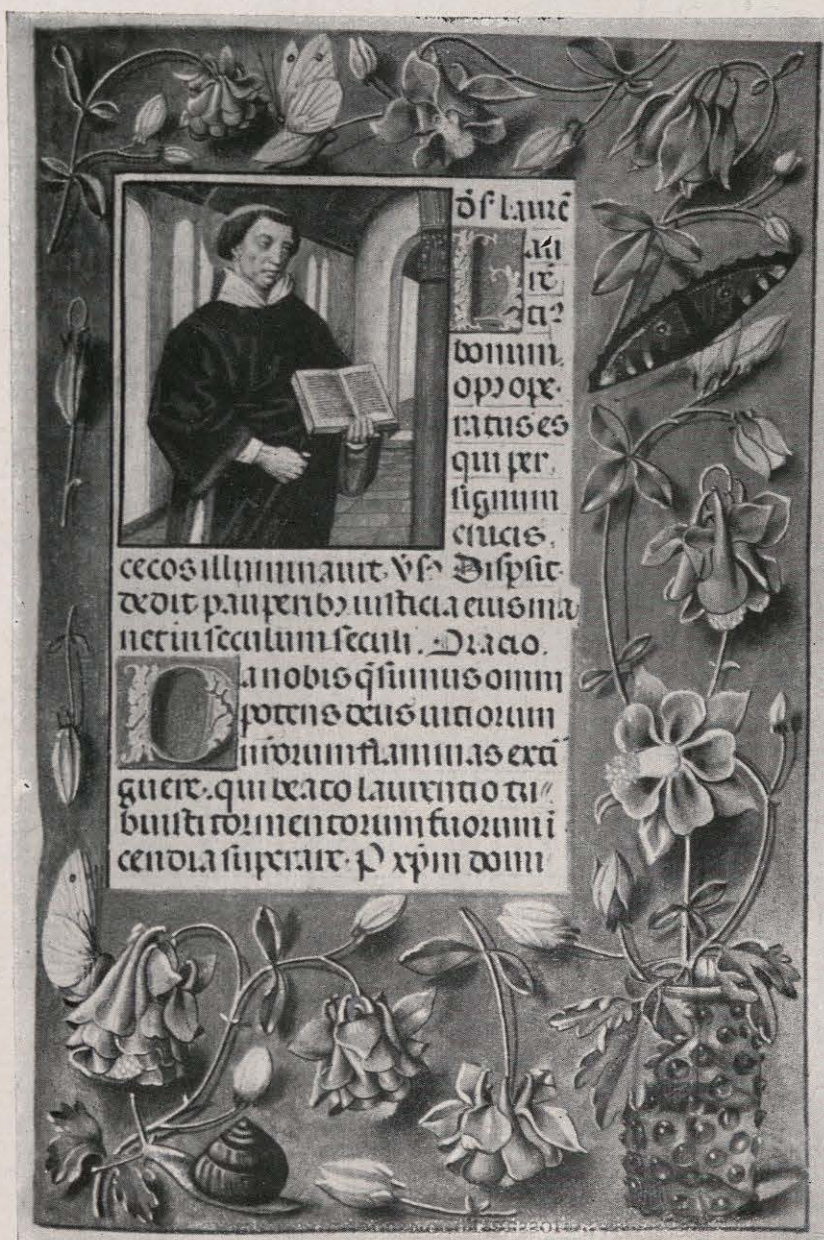 dẽ sc̃ laurẽ
Lau
rẽ
ti᷒
bonum
opꝰ ope
ratus es
qui per
signum
crucis.
cecos illuminauit. Vſ᷒ Dispsit
dedit pauperibꝰ iusticia eius ma
net in seculum seculi. Oracio.
Da nobis q̃sumus omni
potens deus uiciorum
nr̃orum flammas exti
guere. qui beato laurentio tri〃
buisti tormentorum suorum ĩ
cendia superare. P xp̃m domi